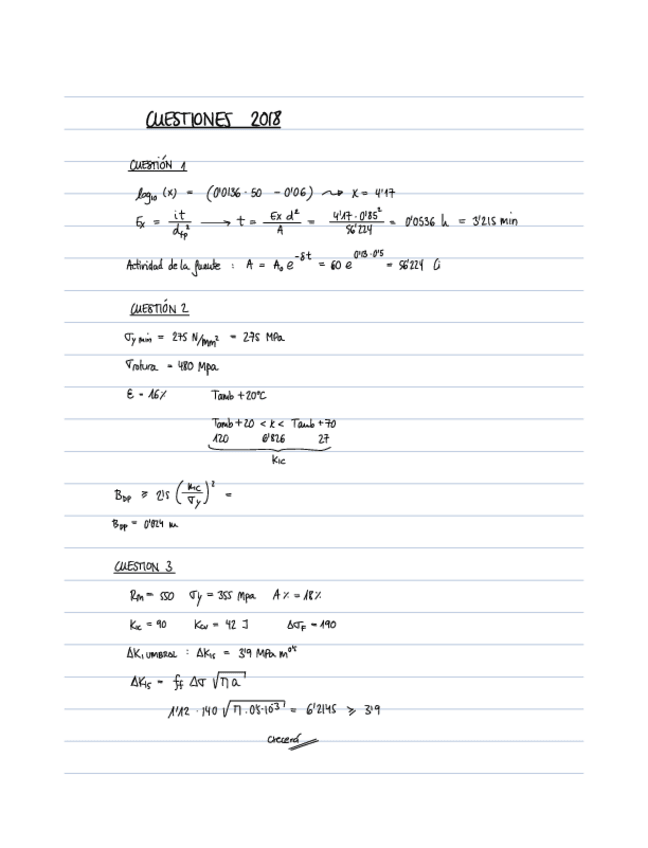 CUESTIONES 2018
CUESTIÓN 1
log₁₀ (x) = (0'0136 · 50 - 0'06) ⇝ x = 4'17
Ex = it / dfp² → t = Ex d² / A = 4'17 · 0'85² / 56'224 = 0'0536 h = 3'215 min
Actividad de la fuente : A = A₀ e^-δt = 60 e^0'13·0'5 = 56'224 Ci
CUESTIÓN 2
σy min = 275 N/mm² = 275 MPa
σrotura = 480 Mpa
ε = 16% Tamb +20°C
Tamb +20 < k < Tamb +70
120 6'826 27
KIC
BDP ≥ 2'5 (KIC / σy)² =
BDP = 0'824 m
CUESTION 3
Rm = 550 σy = 355 Mpa A % = 18%
KIC = 90 KCV = 42 J ΔσF = 190
ΔK, UMBRAL : ΔKIS = 3'9 MPa m^0'5
ΔKIS = ff Δσ √(π a)
1'12 · 140 √(π · 0'5·10⁻³) = 6'2145 ≥ 3'9
crecerá